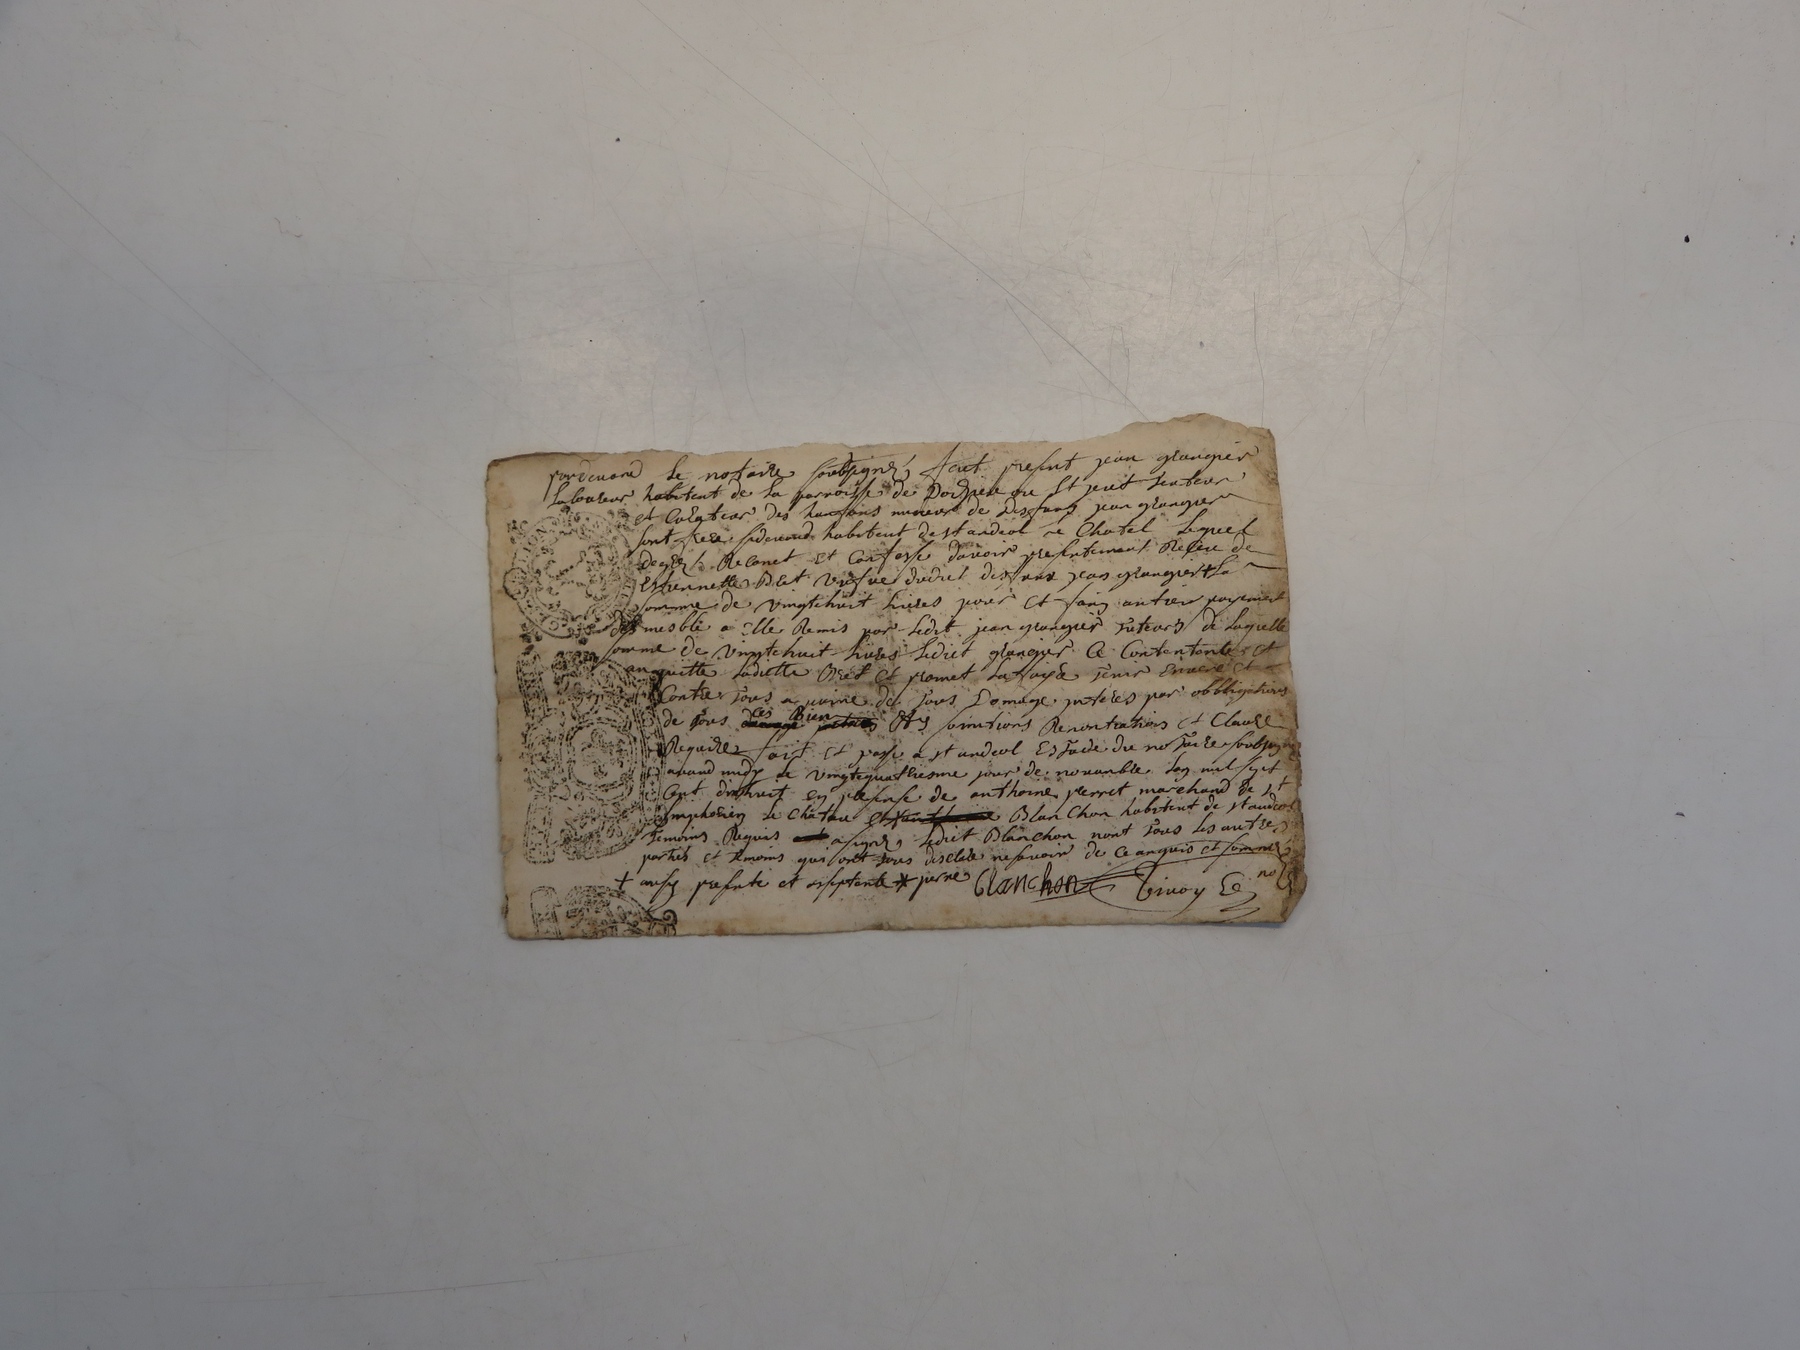 pardevand le notaire soubsigné, fut present jean grangier
laboureur habitent de la parroisse de st jeuit tuteur
et Curateur des mineur de deffunt jean grangier
sont frere habitent de st andeol le Chatel Lequel
de gré, Reconet et Confesse davoir presentement Reseu de
Estiennette Bret veufve dudict deffunt jean grangier + La
somme de vingthuit livres pour et sans autre payement
des meuble a Elle Remis par Ledit jean grangier tuteur, de Laquelle
somme de vingthuit livres Ledict grangier Ce Contente et
an quitte Ladiette Bret Et promet La faire tenir Envers et
Contre tous a peine de tous Domage interes par obbligations
de tous ces Bien Et Renontiations et Clause
Requize fait et passe a st andeol Estude du notaire soubsigné
avand midy Le vingtequatriesme jour de novanble Lan mil sept
Cent dixhuit en presense de anthoine perret marchand de st
simphorien Le Chateau et Blanchon habitent de st andeol
temoins Requis a signe, Ledict Blanchon nont tous Les autres
parties et temoins qui ont tous desclare ne savoir de Ce anquis et sommes
+ ansy presente et * perre Blanchon no